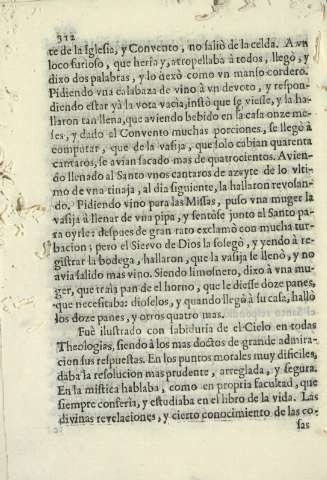 312
te de la Iglesia, y Convento, no saliò de la celda. A vn
loco furioso, que heria y, atropellaba à todos, llegò, y
dixo dos palabras, y lo dexò como vn manso cordero.
Pidiendo vna calabaza de vino à vn devoto, y respon-
diendo estar yà la vota vacia, instò que se viesse, y la ha-
llaron tan llena, que aviendo bebido en la casa onze me-
ses, y dado al Convento muchas porciones, se llegò à
computar, que de la vasija, que solo cabian quarenta
cantaros, se avian sacado mas de quatrocientos. Avien-
do llenado al Santo vnos cantaros de azeyte de lo vlti-
mo de vna tinaja, al dia siguiente, la hallaron revosan-
do. Pidiendo vino para las Missas, puso vna muger la
vasija à llenar de vna pipa, y sentòse junto al Santo pa-
ra oyrle: despues de gran rato exclamò con mucha tur-
bacion; pero el Siervo de Dios la sosegò, y yendo à re-
gistrar la bodega, hallaron, que la vasija se llenò, y no
avia salido mas vino. Siendo limosnero, dixo à vna mu-
ger, que traìa pan de el horno, que le diesse doze panes,
que necesitaba: dioselos, y quando llegò à su casa, hallò
los doze panes, y otros quatro mas.
Fuè ilustrado con sabiduria de el Cielo en todas
Theologias, siendo à los mas doctos de grande admira-
cion sus respuestas. En los puntos morales muy dificiles,
daba la resolucion mas prudente, arreglada, y segura.
En la mistica hablaba, como en propria facultad, que
siempre conferia, y estudiaba en el libro de la vida. Las
divinas revelaciones, y cierto conocimiento de las co-
sas